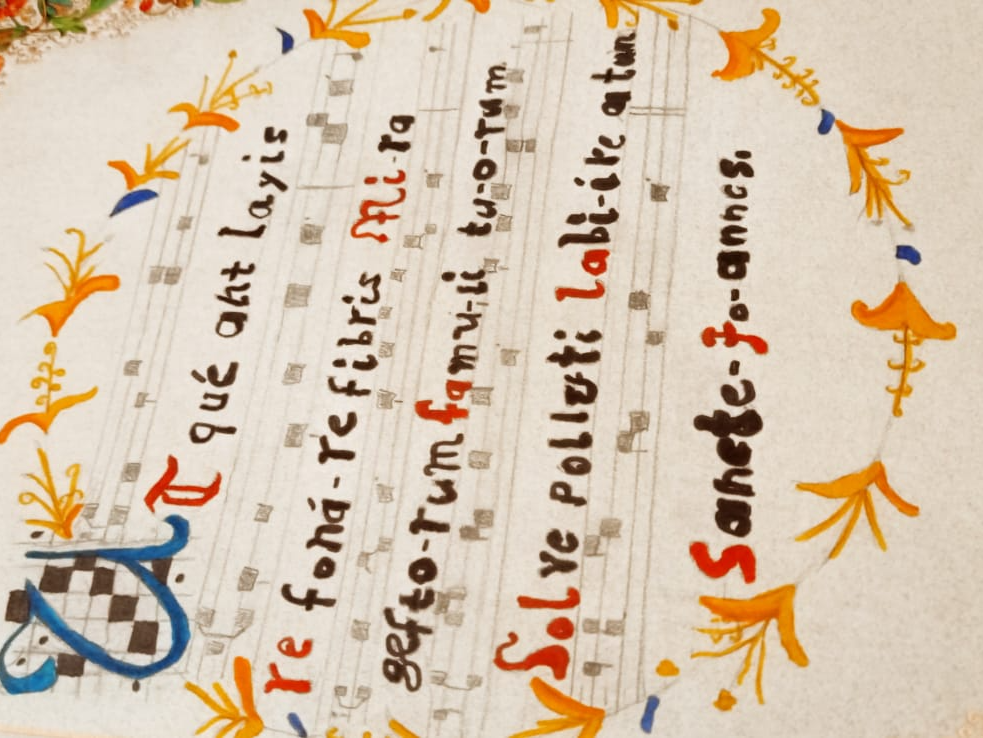 UT qué ant laxis
re foná-re fibris Mi-ra
gefto-rum famu-li tu-o-rum
Solve polluti labi-ire atum
Sancte-Jo-annes.